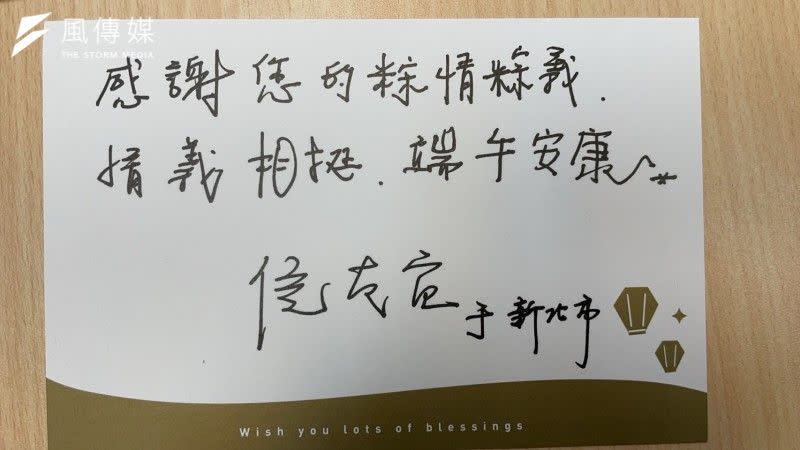 風傳媒
THE STORM MEDIA
感謝您的粽情粽義.
情義相挺.端午安康～*
侯友宜 于新北市
Wish you lots of blessings